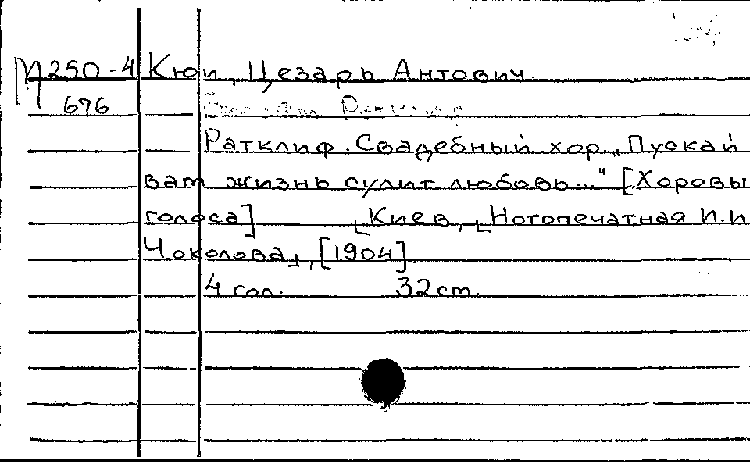 М 250-4 Кюи, Цезарь Антович
676
Ратклиф. Свадебный хор „Пускай
вам жизнь сулит любовь..." [Хоровы
голоса] [Киев, [Нотопечатная И.И
Чоколова], [1904]
4 гол. 32 cm.